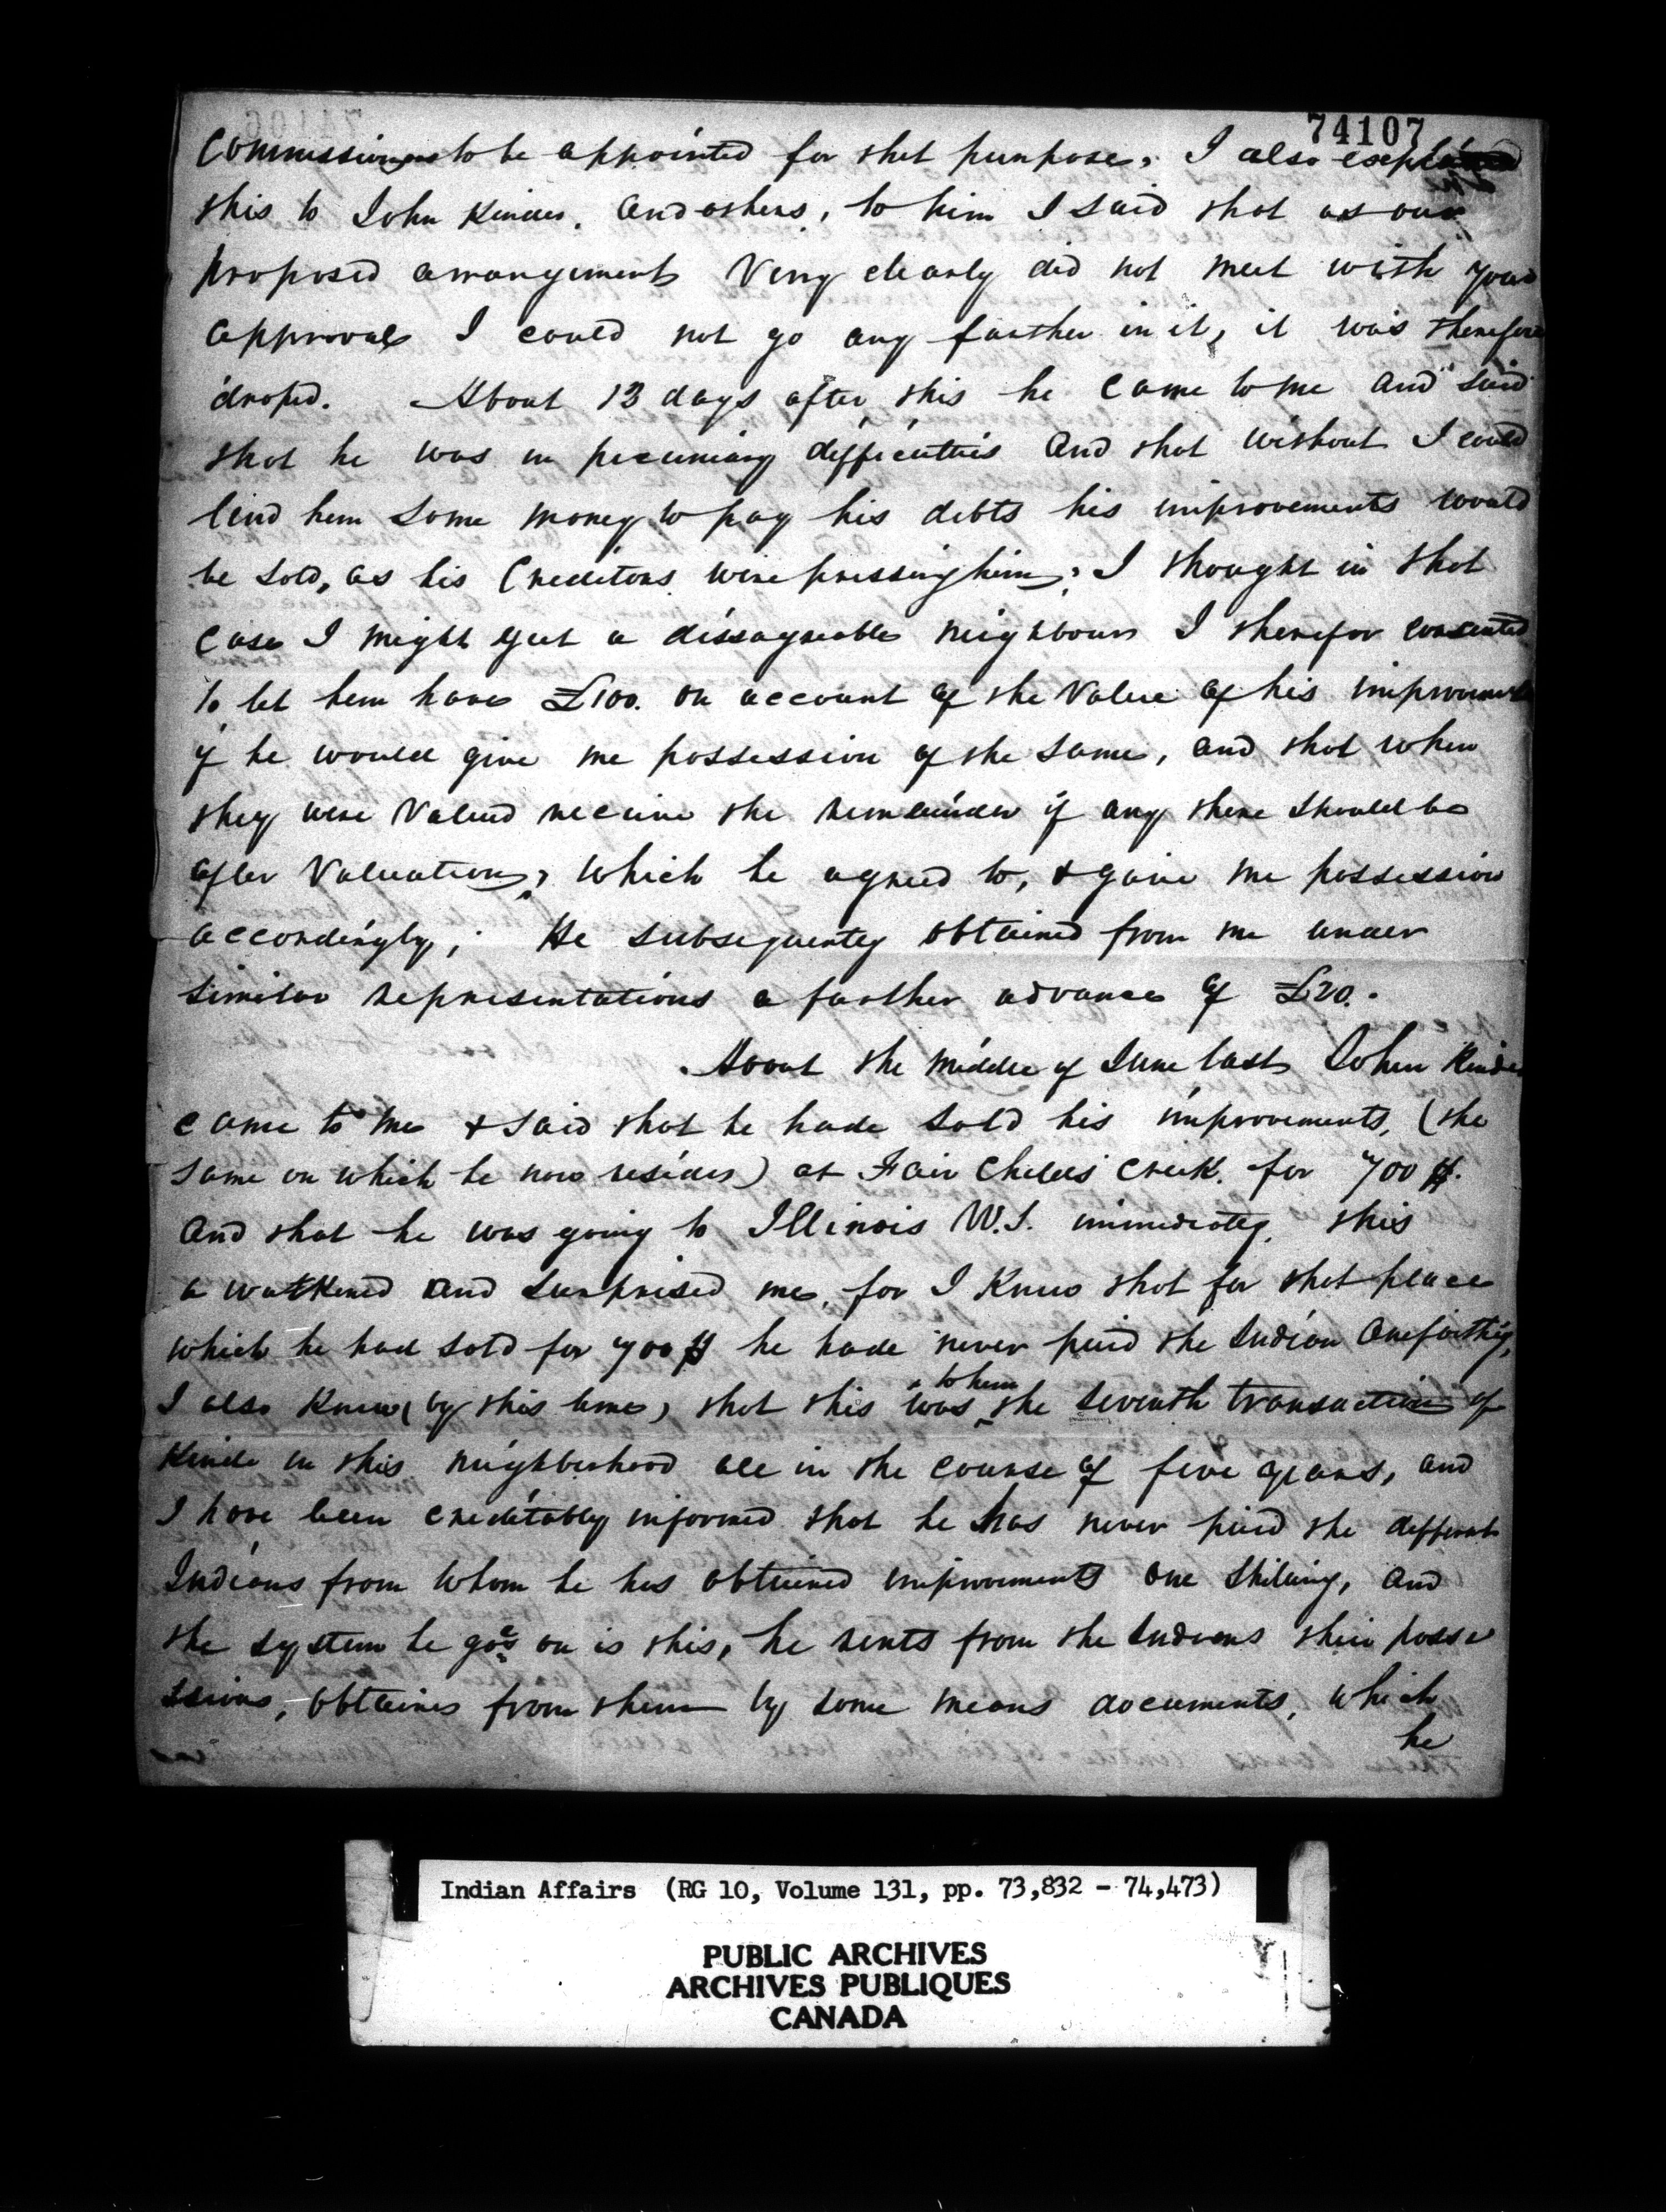 74107
Commissioners to be appointed for that purpose, I also
this to John Kinder. and others, to him I said that as our
proposed arrangement Very clearly did not meet with your
approval I could not go any farther in it, it was therefore
droped. About 13 days after this he came to me and said
that he was in pecuniary difficulties and that without I could
lend him some money to pay his debts his improvements would
be sold, as his Creditors were pressing him, I thought in that
Case I might get a dissagreable neighbour I therefor consented
to let him have £100. on account of the Value of his improvements
if he would give me possession of the same, and that when
they were Valued receive the remainder if any there should be
after Valuation, which he agreed to, & gave me possession
accordingly; He subsequently obtained from me under
similar representations a farther advance of £20.
About the middle of June last John Kinder
came to me & said that he hade sold his improvements, (the
same on which he now resides) at Fair Childs Creek. for 700 $.
and that he was going to Illinois W.S. immediatly. this
a wakened and surprised me, for I Knew that for that place
which he had sold for 700 $ he hade never paid the Indian one farthing,
I also Knew (by this time) that this was to him the seventh transaction of
Kinde in this neighberhood all in the course of five years, and
I have been creditably informed that he has never paid the different
Indians from whom he has obtained improvements one shilling, and
the system he goes on is this, he rents from the Indians their posse
ssions, obtaines from them by some means documents, which
he
Indian Affairs (RG 10, Volume 131, pp. 73,832 - 74,473)
PUBLIC ARCHIVES
ARCHIVES PUBLIQUES
CANADA